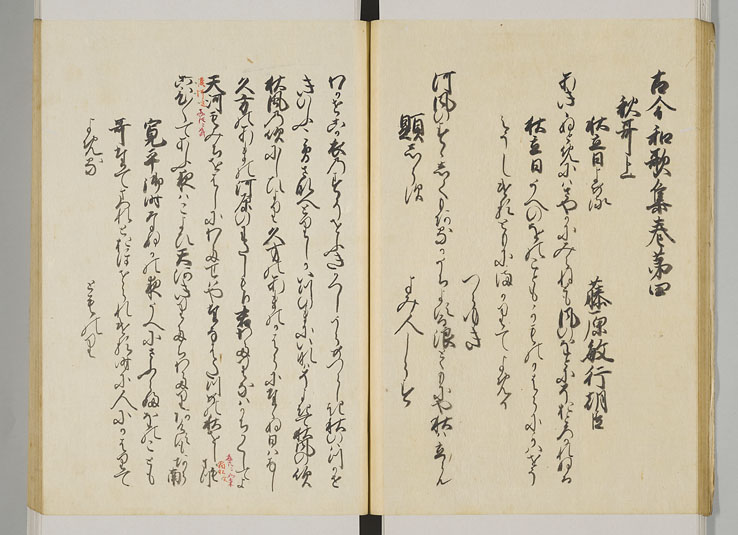 古今和歌集巻第四
秋哥上
秋立日よめる　藤原敏行朝臣
あききぬとめにはさやかにみえねとも風のをとにそおとろかれぬる
秋立日うへのをのこともかものかはらにかはせう
えうしけるともにまかりてよめる
つらゆき
河風のすゝしくもあるかうちよする浪とともにや秋は立らん
題しらす　よみ人しらす
わかせこか衣のすそをふきかへしうらめつらしき秋のはつかせ
きのふこそさなへとりしかいつのまにいなはそよきて秋風の吹
秋風の吹にし日より久方のあまのかはらにたゝぬ日はなし
久方のあまの河原のわたしもり君わたりなはかちかくしてよ
天河もみちをはしにわたせはやたなはたつめの秋をしもまつ
こひ〳〵てあふ夜はこよひ天河きりたちわたりあけすもあらなん
寛平御時なぬかの夜うへにさふらふをのことも
哥たてまつれとおほせられける時に人にかはりて
よめる　とものり